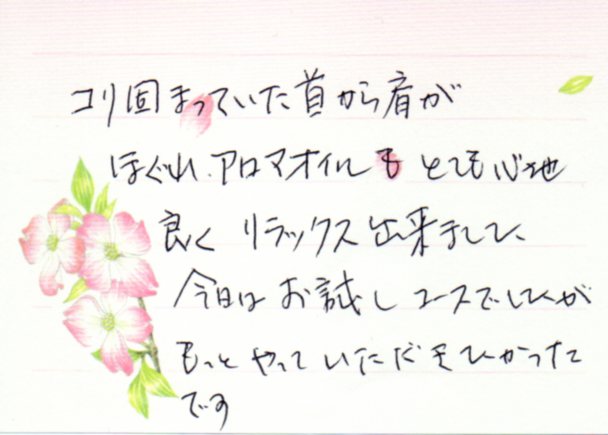 コリ固まっていた首から肩が
ほぐれ、アロマオイルもとても心地
良く リラックス出来ました、
今日は お試しコースでしたが
もっと やって いただきたかった
です